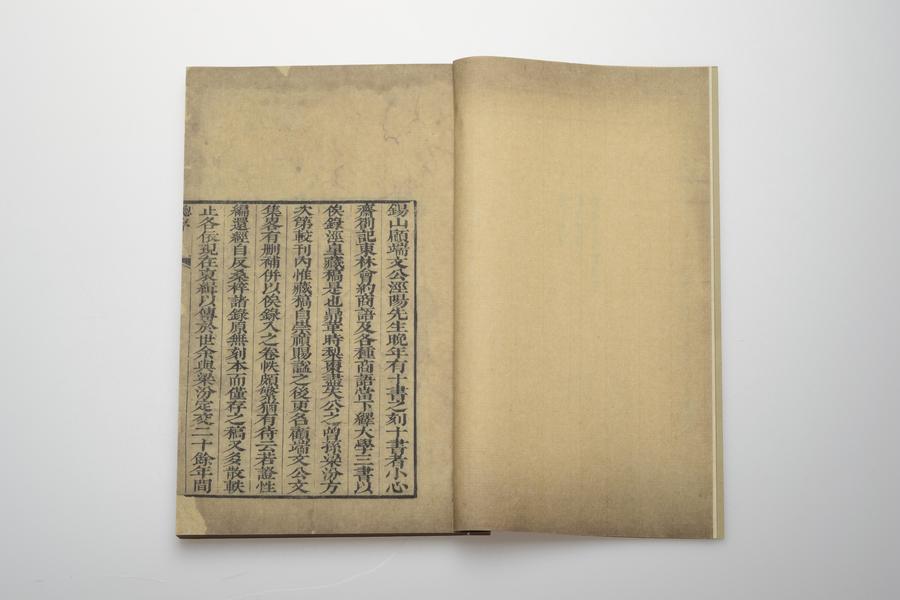 錫山顧端文公涇陽先生晚年有十書之刻十書者小心
齋劄記東林會約商語及各種商語當下繹大學三書以
俟錄涇臯藏稿是也鼎革時梨棗盡失公之曾孫梁汾方
次第較刊內惟藏稿自崇禎賜諡之後更名顧端文公文
集畧有刪補併以俟錄入之卷帙頗繁猶有待云若證性
編還經自反桑梓諸錄原無刻本而僅存之稿又多散軼
止各依現在裒緝以傳於世余與梁汾定交二十餘年間
總序